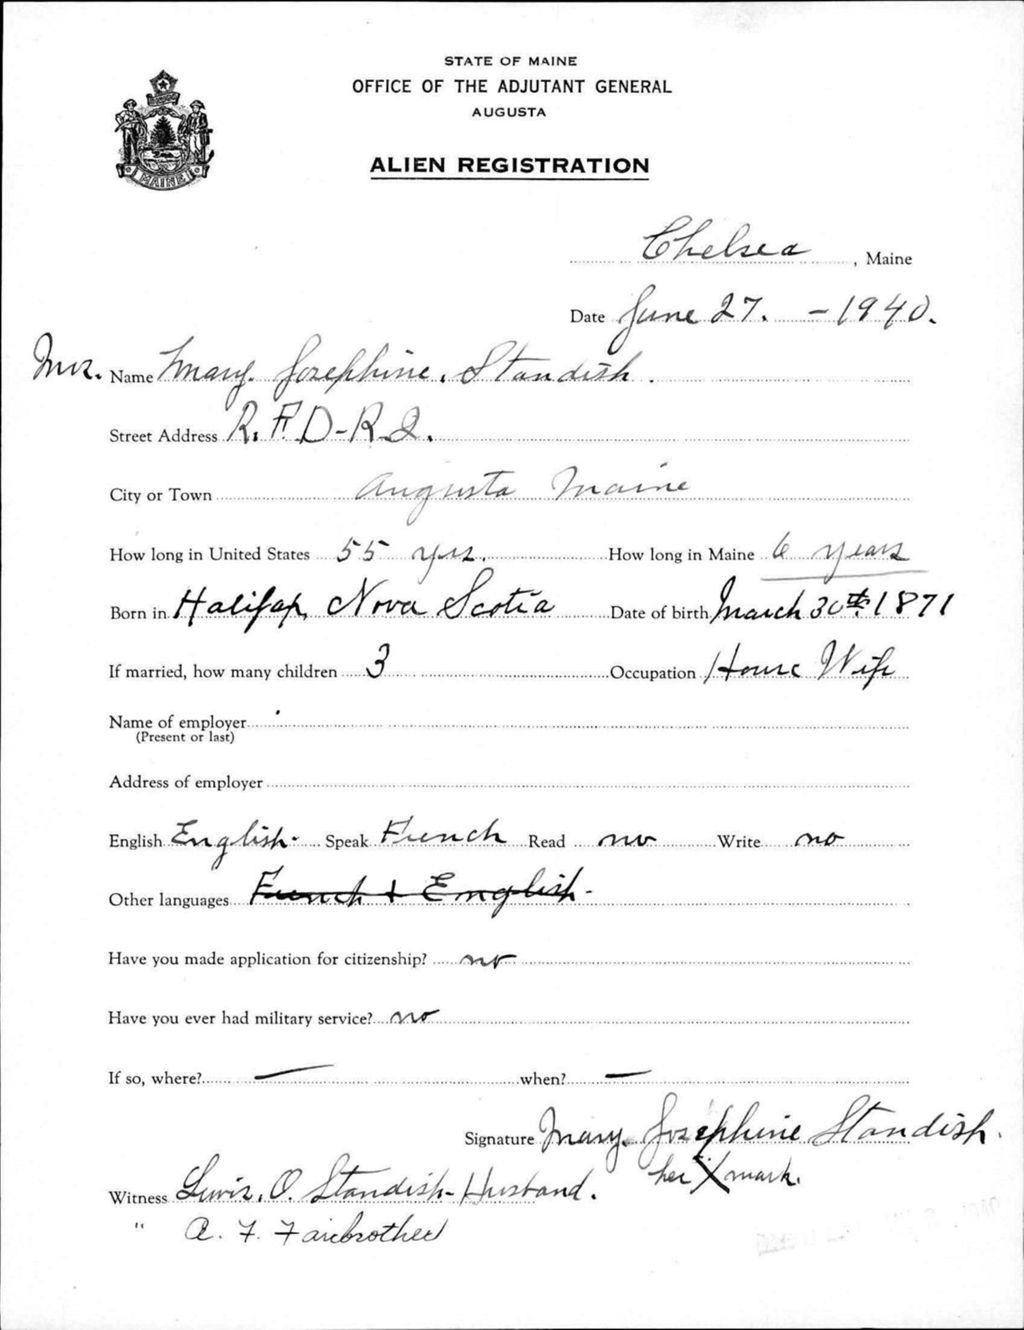 STATE OF MAINE
OFFICE OF THE ADJUTANT GENERAL
AUGUSTA
ALIEN REGISTRATION
MAINE
Chelsea, Maine
Date June 27. - 1940.
Mrs. Name Mary. Josephine. Standish.
Street Address R.F.D-R2.
City or Town Augusta Maine
How long in United States 55 yrs. How long in Maine 6 years
Born in Halifax, Nova Scotia Date of birth March 30th 1871
If married, how many children 3 Occupation House Wife
Name of employer
(Present or last)
Address of employer
English English. Speak French Read no Write no
Other languages French & English-
Have you made application for citizenship? no
Have you ever had military service? no
If so, where? — when? —
Signature Mary. Josephine Standish.
her X mark.
Witness Lewis. O. Standish-Husband.
" A. F. Fairbrother